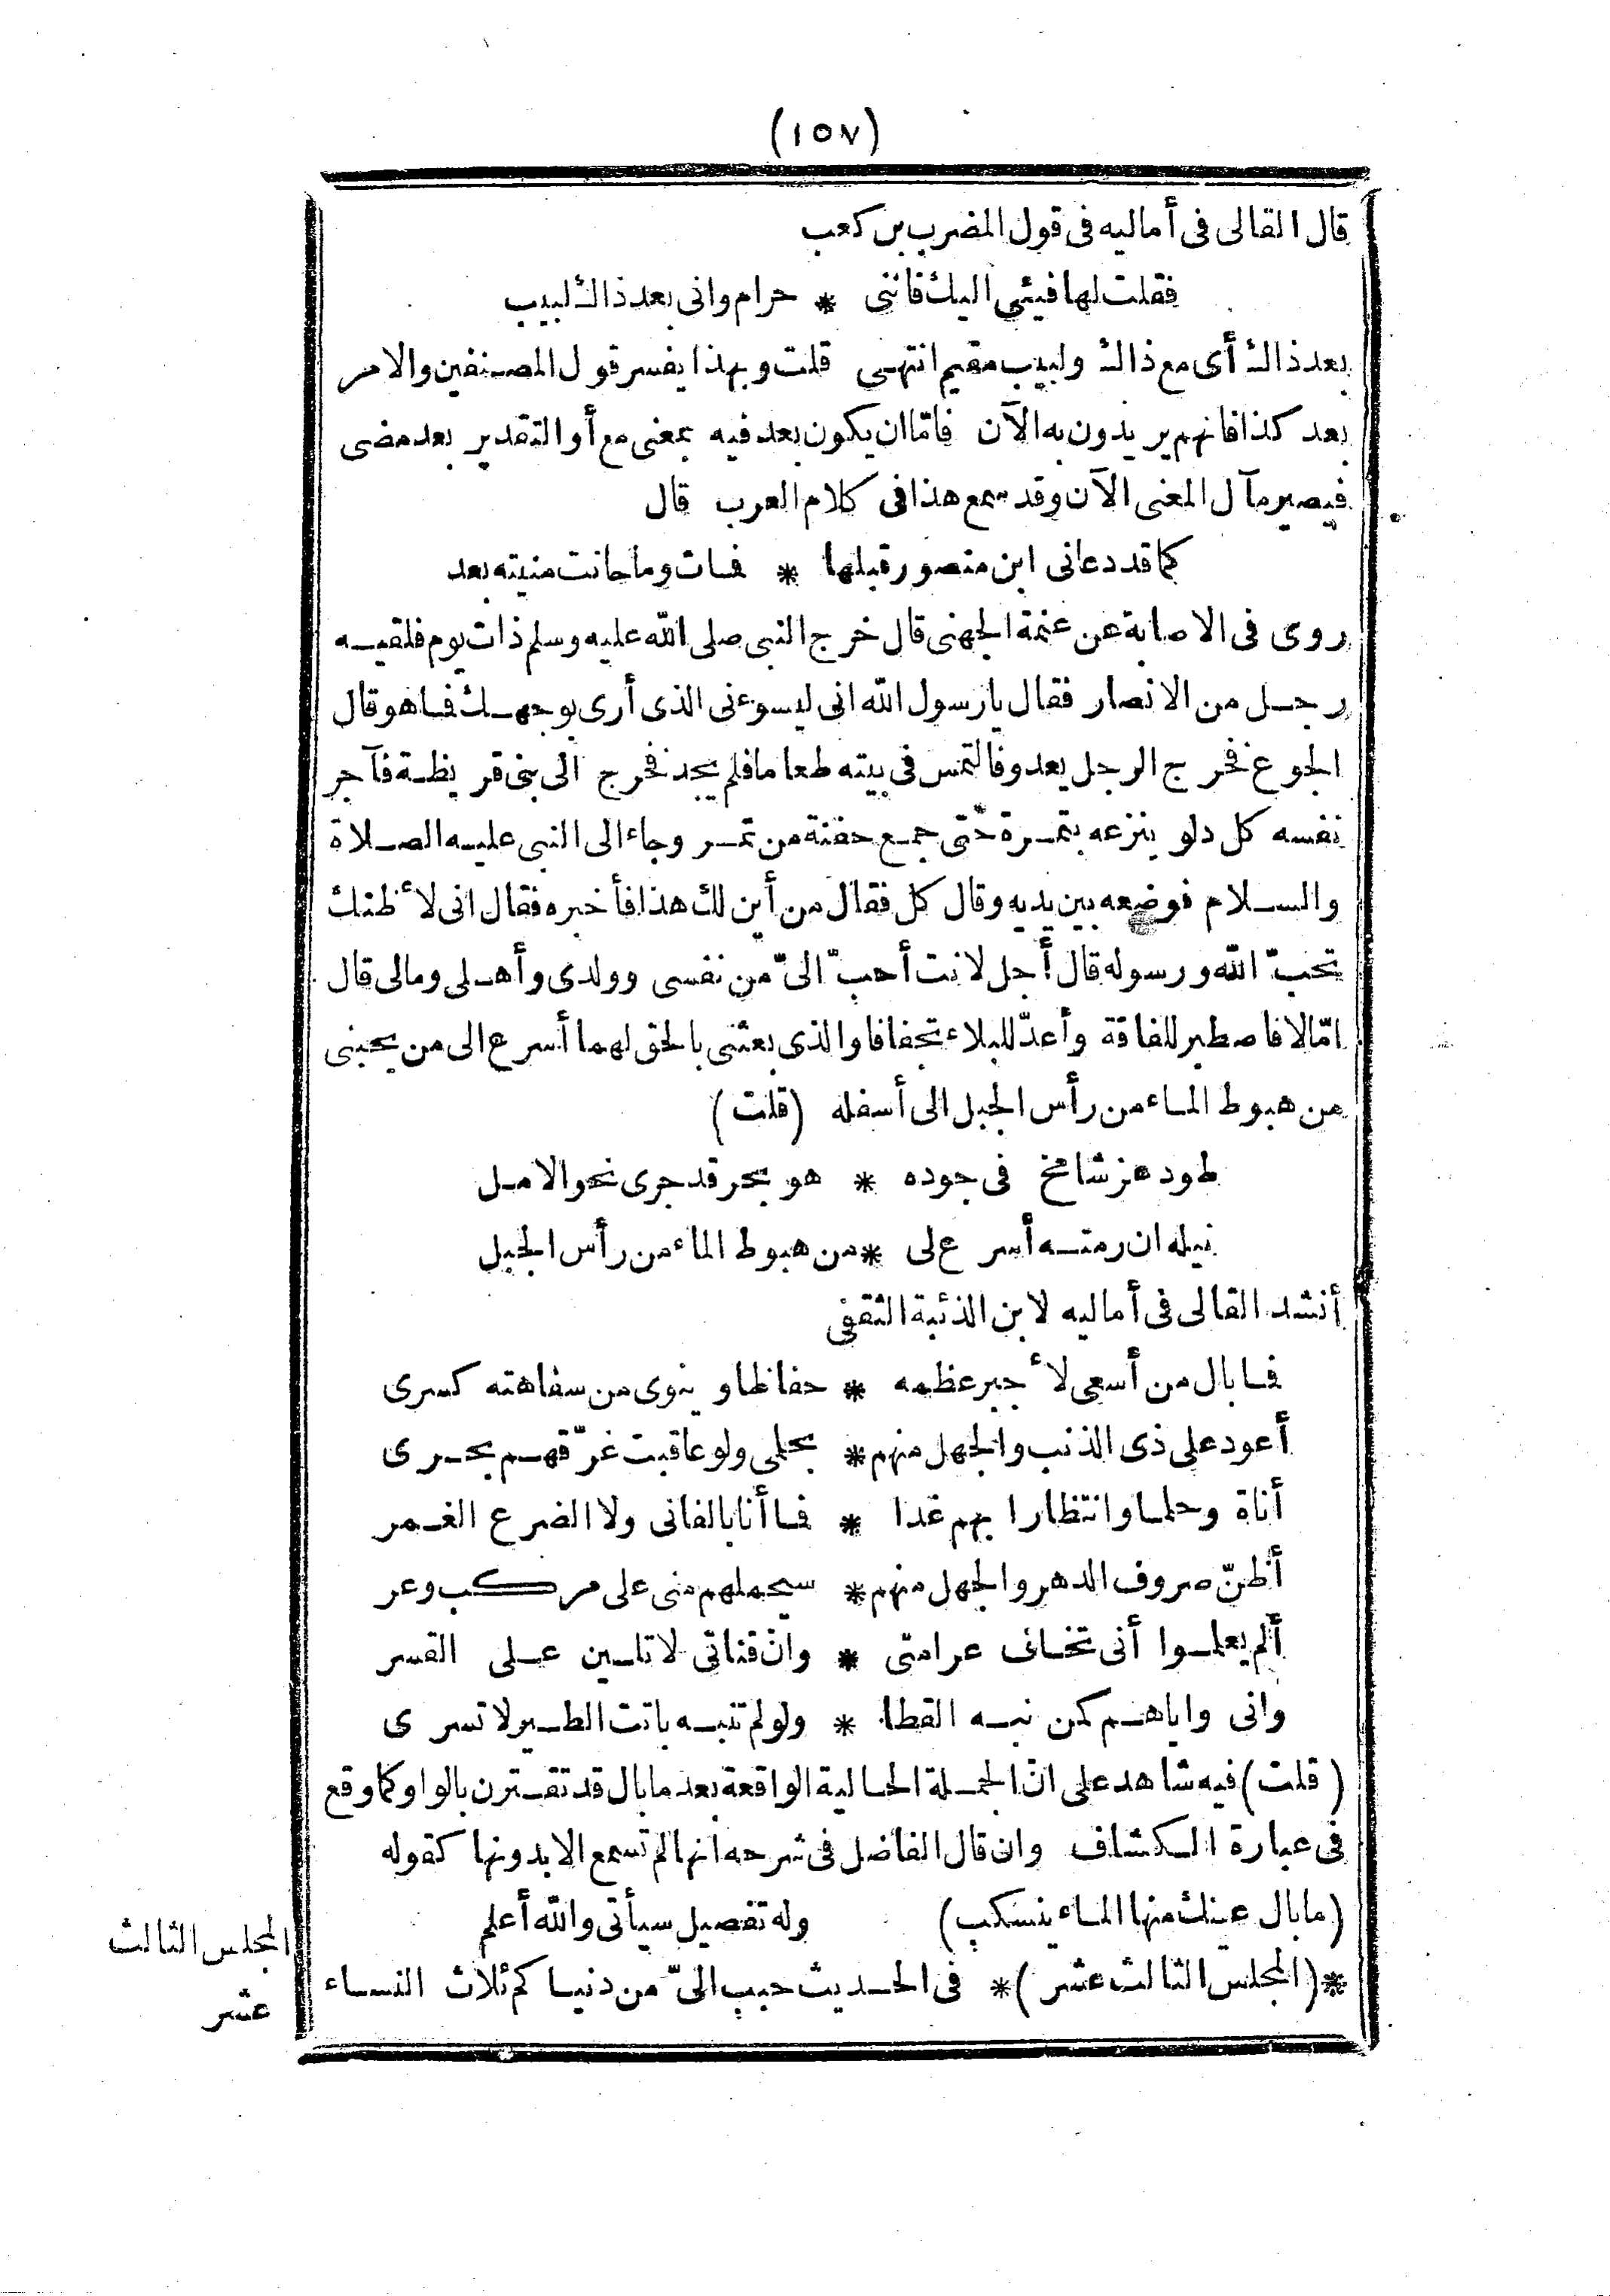 (١٥٧)
قال القالى فى أماليه فى قول المضرب بن كعب
فقلت لها فيئى اليك فاننى * حرام وانى بعد ذاك لبيب
بعد ذاك أى مع ذاك ولبيب مقيم انتهى قلت وبهذا يفسر قول المصنفين والامر
بعد كذا فانهم يريدون به الآن فاتما ان يكون بعد فيه بمعنى مع أو التقدير بعد مضى
فيصير مآل المعنى الآن وقد سمع هذا فى كلام العرب قال
كما قد دعانى ابن منصور قبلها * فمات وما حانت منيته بعد
روى فى الاصابة عن عنمة الجهنى قال خرج النبى صلى الله عليه وسلم ذات يوم فلقيه
رجل من الانصار فقال يا رسول الله انى ليسوءنى الذى أرى بوجهك فما هو قال
الجوع فخرج الرجل يعدو فالتمس فى بيته طعاما فلم يجد فخرج الى بنى قريظة فآجر
نفسه كل دلو ينزعه بتمرة حتى جمع حفنة من تمر وجاء الى النبى عليه الصلاة
والسلام فوضعه بين يديه وقال كل فقال من أين لك هذا فأخبره فقال انى لأظنك
تحبّ الله ورسوله قال أجل لانت أحبّ الىّ من نفسى وولدى وأهلى ومالى قال
امّا لا فاصطبر للفاقة وأعدّ للبلاء تجفافا والذى بعثنى بالحق لهما أسرع الى من يحبنى
من هبوط الماء من رأس الجبل الى أسفله (قلت)
طود عز شامخ فى جوده * هو بحر قد جرى نحو الامل
نيله ان رمته أسرع لى * من هبوط الماء من رأس الجبل
أنشد القالى فى أماليه لابن الذئبة الثقفى
فما بال من أسعى لأجبر عظمه * حفاظا وينوى من سفاهته كسرى
أعود على ذى الذنب والجهل منهم * بحلمى ولو عاقبت غرّقهم بحرى
أناة وحلما وانتظارا بهم غدا * فما أنا بالفانى ولا الضرع الغمر
أظنّ صروف الدهر والجهل منهم * سيحملهم منى على مركب وعر
ألم يعلموا أنى تخاف عرامتى * وان قناتى لا تلين على القسر
وانى واياهم كمن نبه القطا * ولو لم تنبه باتت الطير لا تسرى
(قلت) فيه شاهد على انّ الجملة الحالية الواقعة بعد ما بال قد تقترن بالواو كما وقع
فى عبارة الكشاف وان قال الفاضل فى شرحه انها لم تسمع الا بدونها كقوله
(ما بال عينك منها الماء ينسكب) وله تفصيل سيأتى والله أعلم
*(المجلس الثالث عشر)* فى الحديث حبب الىّ من دنياكم ثلاث النساء
المجلس الثالث
عشر